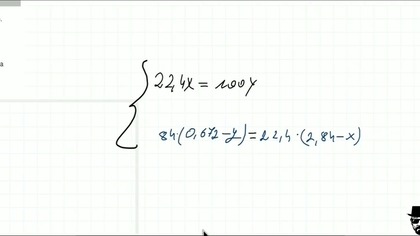 22,4x = 100y
84(0,672-y)=22,4·(2,84-x)